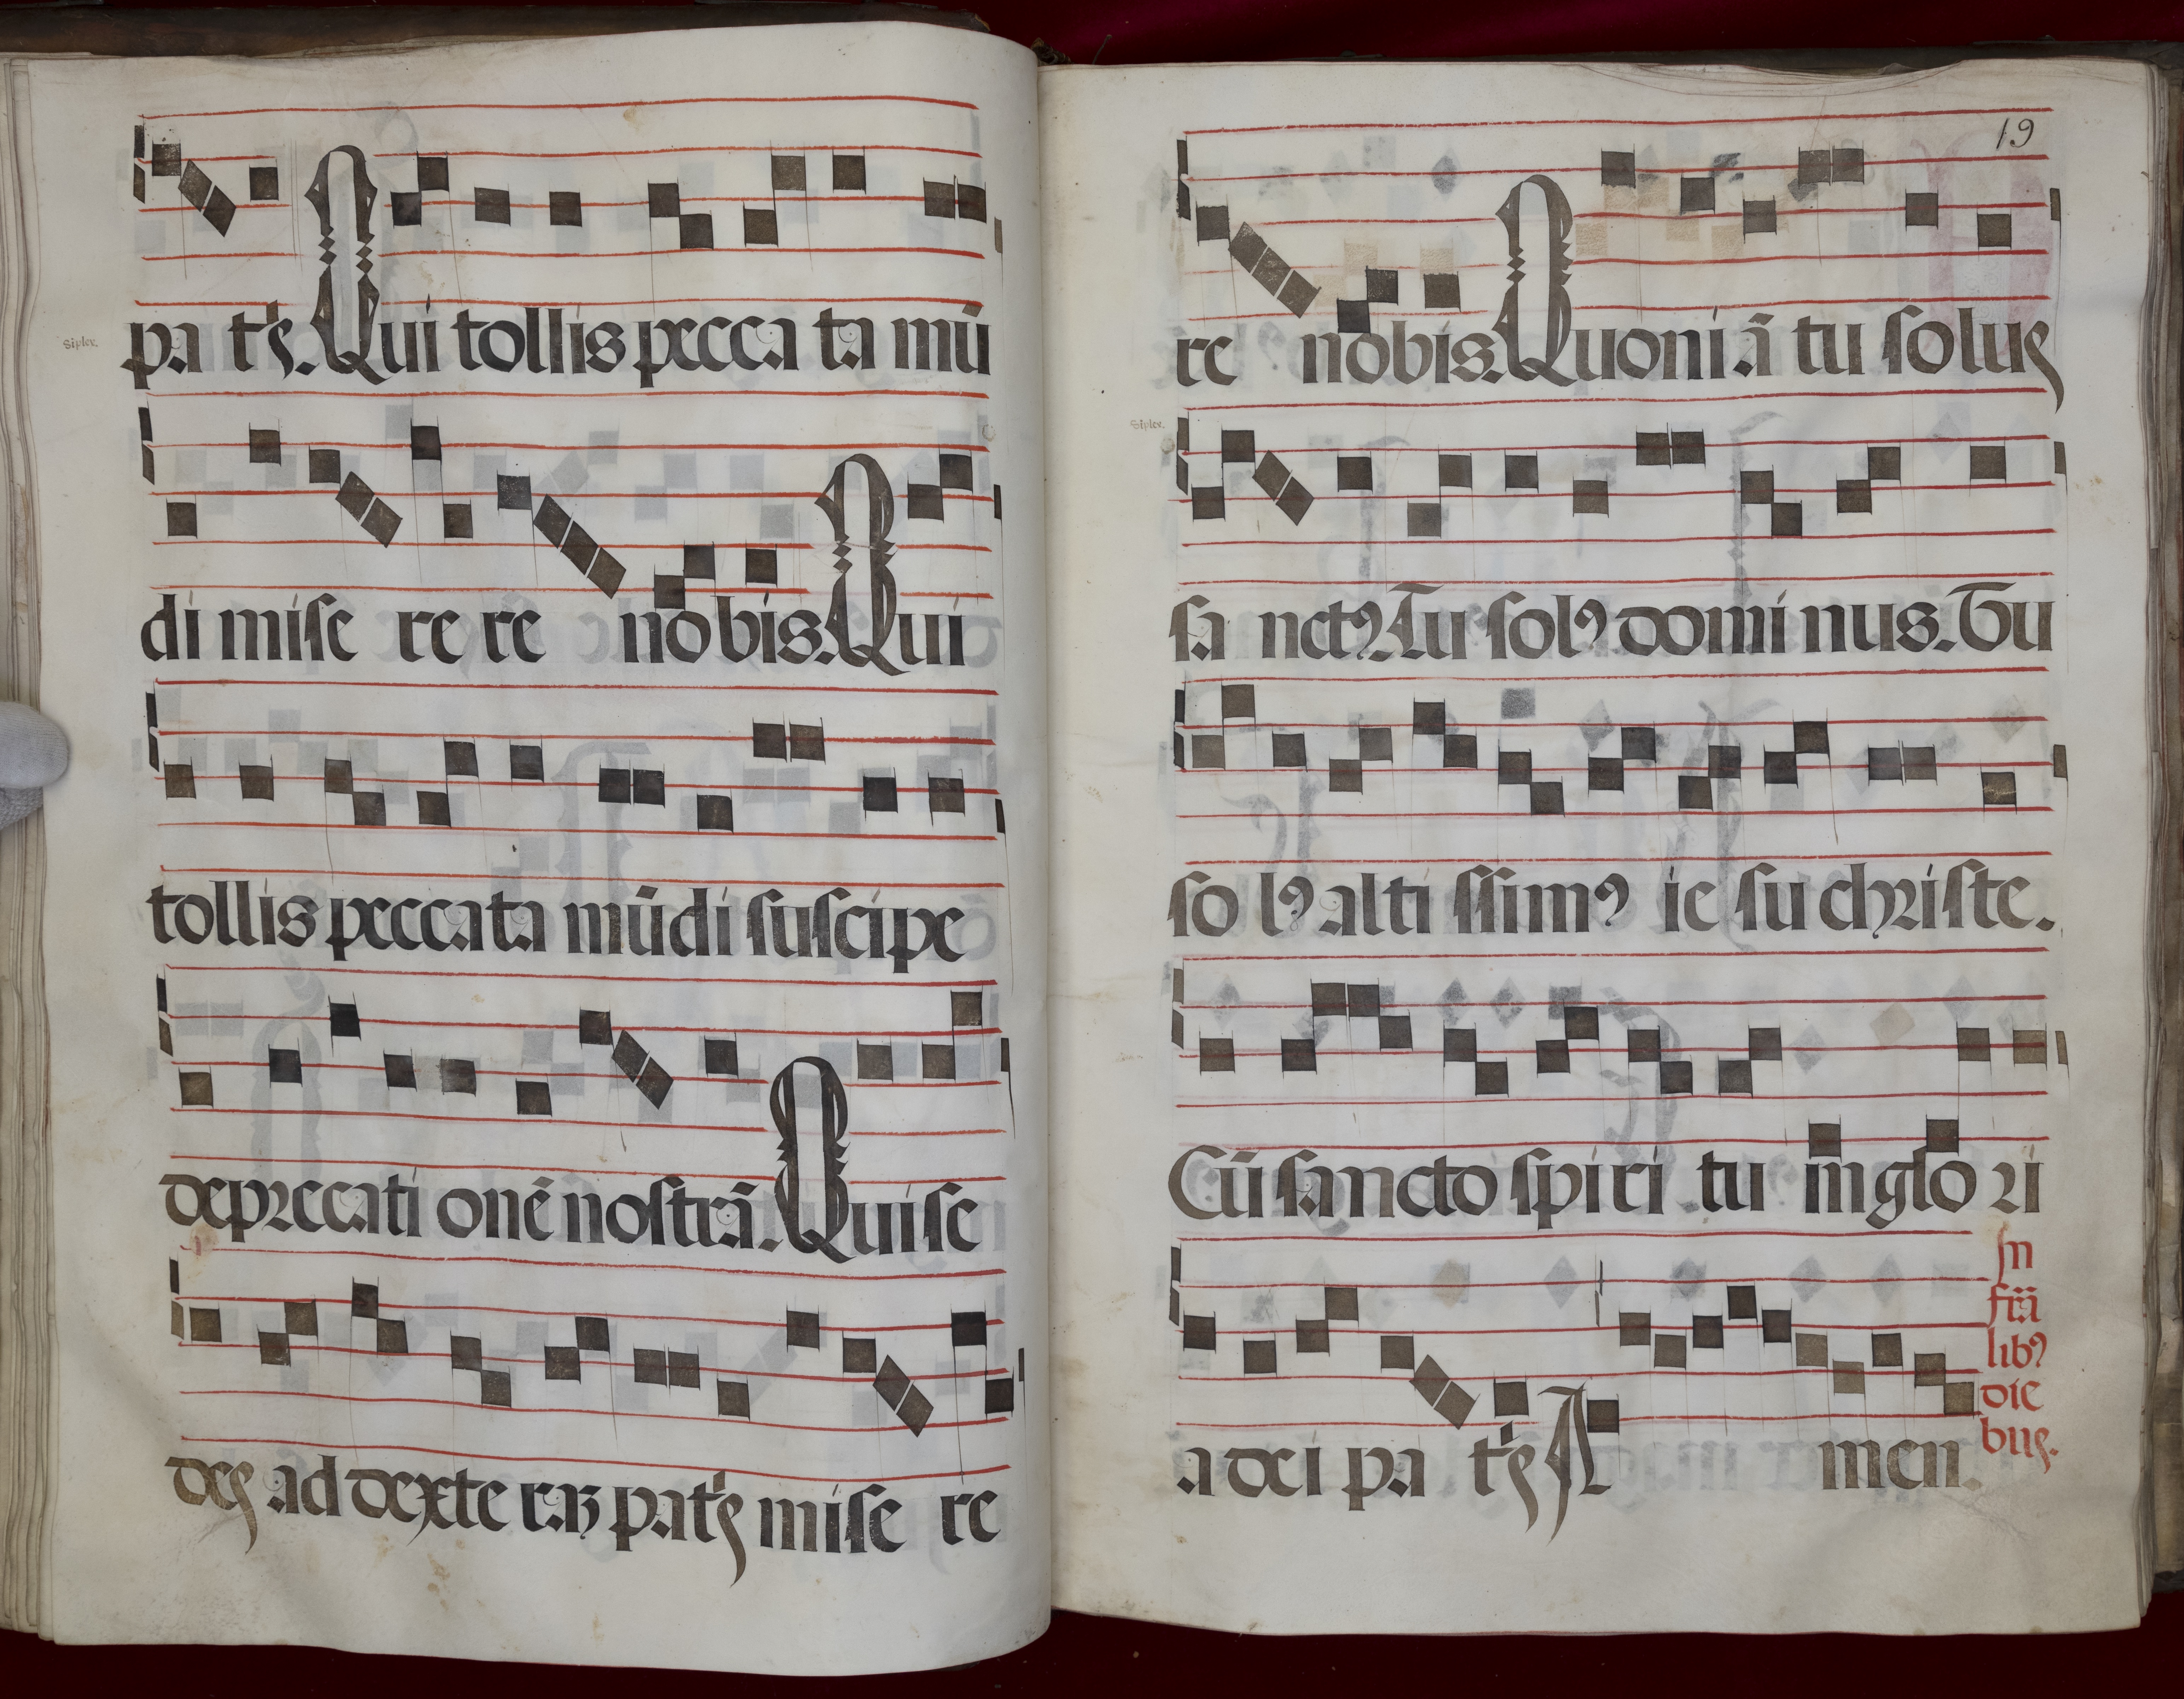 pa tr̃s. Qui tollis pecca ta mũ
Siplex.
di mise re re nobis. Qui
tollis peccata mũdi suscipe
deprecati onẽ nostrã. Qui se
des ad dexte raꝫ patr̃s mise re
19
re nobis. Quoni ã tu solus
Siplex.
sa nctꝰ. Tu solꝰ domi nus. Tu
so lꝰ alti ssimꝰ ie su christe.
Cũ sancto spiri tu in glo ri
a dei pa tr̃s A men.
In
frã
libꝰ
die
bus.